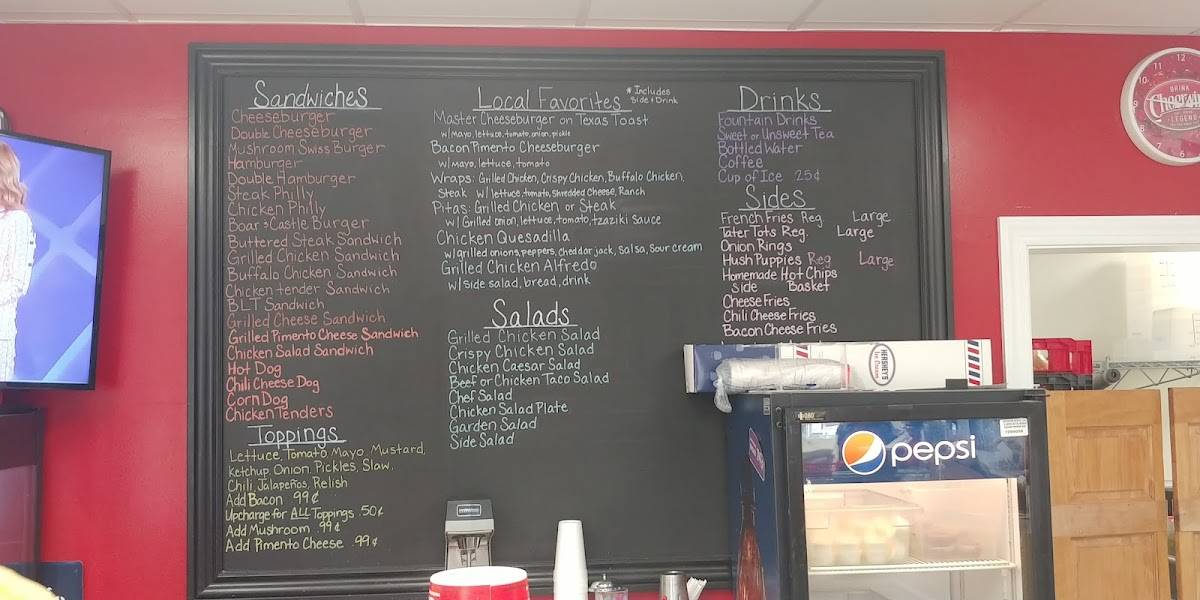 Sandwiches
Cheeseburger
Double Cheeseburger
Mushroom Swiss Burger
Hamburger
Double Hamburger
Steak Philly
Chicken Philly
Boar's Castle Burger
Buttered Steak Sandwich
Grilled Chicken Sandwich
Buffalo Chicken Sandwich
Chicken tender Sandwich
BLT Sandwich
Grilled Cheese Sandwich
Grilled Pimento Cheese Sandwich
Chicken Salad Sandwich
Hot Dog
Chili Cheese Dog
Corn Dog
Chicken Tenders
Toppings
Lettuce, Tomato, Mayo, Mustard,
Ketchup, Onion, Pickles, Slaw,
Chili, Jalapeños, Relish
Add Bacon .99¢
Upcharge for ALL Toppings .50¢
Add Mushroom .99¢
Add Pimento Cheese .99¢
Local Favorites
* Includes
Side & Drink
Master Cheeseburger on Texas Toast
w/ Mayo, lettuce, tomato, onion, pickle
Bacon Pimento Cheeseburger
w/ Mayo, lettuce, tomato
Wraps: Grilled Chicken, Crispy Chicken, Buffalo Chicken,
Steak w/ lettuce, tomato, Shredded Cheese, Ranch
Pitas: Grilled Chicken or Steak
w/ Grilled onion, lettuce, tomato, tzaziki sauce
Chicken Quesadilla
w/ grilled onions, peppers, cheddar jack, salsa, sour cream
Grilled Chicken Alfredo
w/ side salad, bread, drink
Salads
Grilled Chicken Salad
Crispy Chicken Salad
Chicken Caesar Salad
Beef or Chicken Taco Salad
Chef Salad
Chicken Salad Plate
Garden Salad
Side Salad
Drinks
Fountain Drinks
Sweet or Unsweet Tea
Bottled Water
Coffee
Cup of Ice .25¢
Sides
French Fries Reg. Large
Tater Tots Reg. Large
Onion Rings
Hush Puppies Reg Large
Homemade Hot Chips
Side Basket
Cheese Fries
Chili Cheese Fries
Bacon Cheese Fries
HERSHEY'S
Ice Cream
pepsi
DRINK
Cheerwine
LEGEND
11 12
10
9
8
7 6